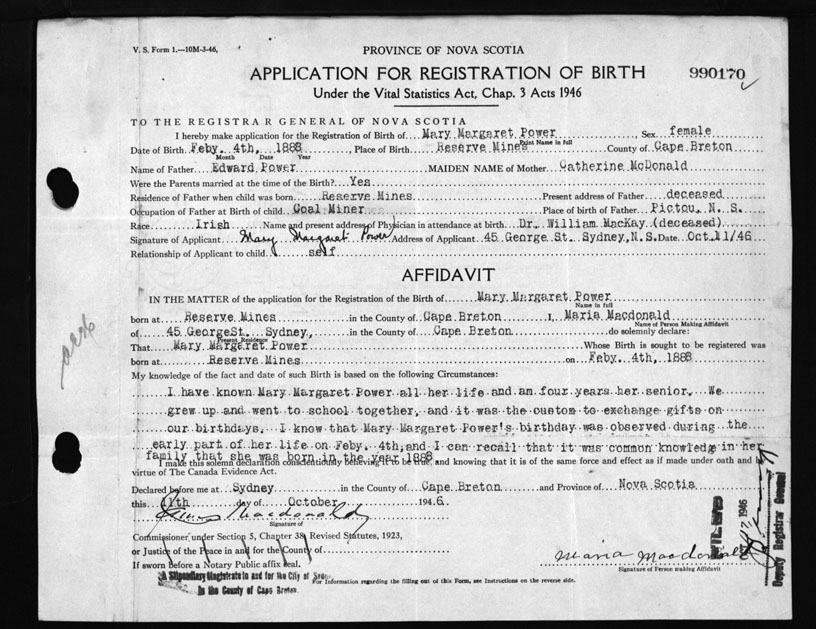 V. S. Form 1.—10M-3-46,
PROVINCE OF NOVA SCOTIA
APPLICATION FOR REGISTRATION OF BIRTH
990170
Under the Vital Statistics Act, Chap. 3 Acts 1946
TO THE REGISTRAR GENERAL OF NOVA SCOTIA
I hereby make application for the Registration of Birth of Mary Margaret Power Sex female
Print Name in full
Date of Birth Feby. 4th, 1888 , Place of Birth Reserve Mines County of Cape Breton
Month Date Year
Name of Father Edward Power MAIDEN NAME of Mother Catherine McDonald
Were the Parents married at the time of the Birth? Yes
Residence of Father when child was born Reserve Mines Present address of Father deceased
Occupation of Father at Birth of child Coal Miner Place of birth of Father Pictou, N. S.
Race Irish Name and present address of Physician in attendance at birth Dr. William MacKay (deceased)
Signature of Applicant Mary Margaret Power Address of Applicant 45 George St. Sydney, N.S. Date Oct. 11/46
Relationship of Applicant to child self
AFFIDAVIT
IN THE MATTER of the application for the Registration of the Birth of Mary Margaret Power
Name in full
born at Reserve Mines in the County of Cape Breton I, Maria Macdonald
Name of Person Making Affidavit
of 45 GeorgeSt. Sydney, in the County of Cape Breton do solemnly declare:
Present Residence
That Mary Margaret Power Whose Birth is sought to be registered was
born at Reserve Mines on Feby. 4th, 1888
My knowledge of the fact and date of such Birth is based on the following Circumstances:
I have known Mary Margaret Power all her life and am four years her senior. We
grew up and went to school together, and it was the custom to exchange gifts on
our birthdays. I know that Mary Margaret Power's birthday was observed during the
early part of her life on Feby. 4th, and I can recall that it was common knowledge in her
family that she was born in the year 1888
I make this solemn declaration conscientiously believing it to be true, and knowing that it is of the same force and effect as if made under oath and by
virtue of The Canada Evidence Act.
Declared before me at Sydney in the County of Cape Breton and Province of Nova Scotia
this 11th day of October 1946.
Macdonald
Signature of
Commissioner under Section 5, Chapter 38, Revised Statutes, 1923,
or Justice of the Peace in and for the County of
If sworn before a Notary Public affix seal.
Maria Macdonald
Signature of Person making Affidavit
A Stipendiary Magistrate in and for the City of Sydney
In the County of Cape Breton.
For Information regarding the filling out of this Form, see Instructions on the reverse side.
1946
Deputy Registrar General